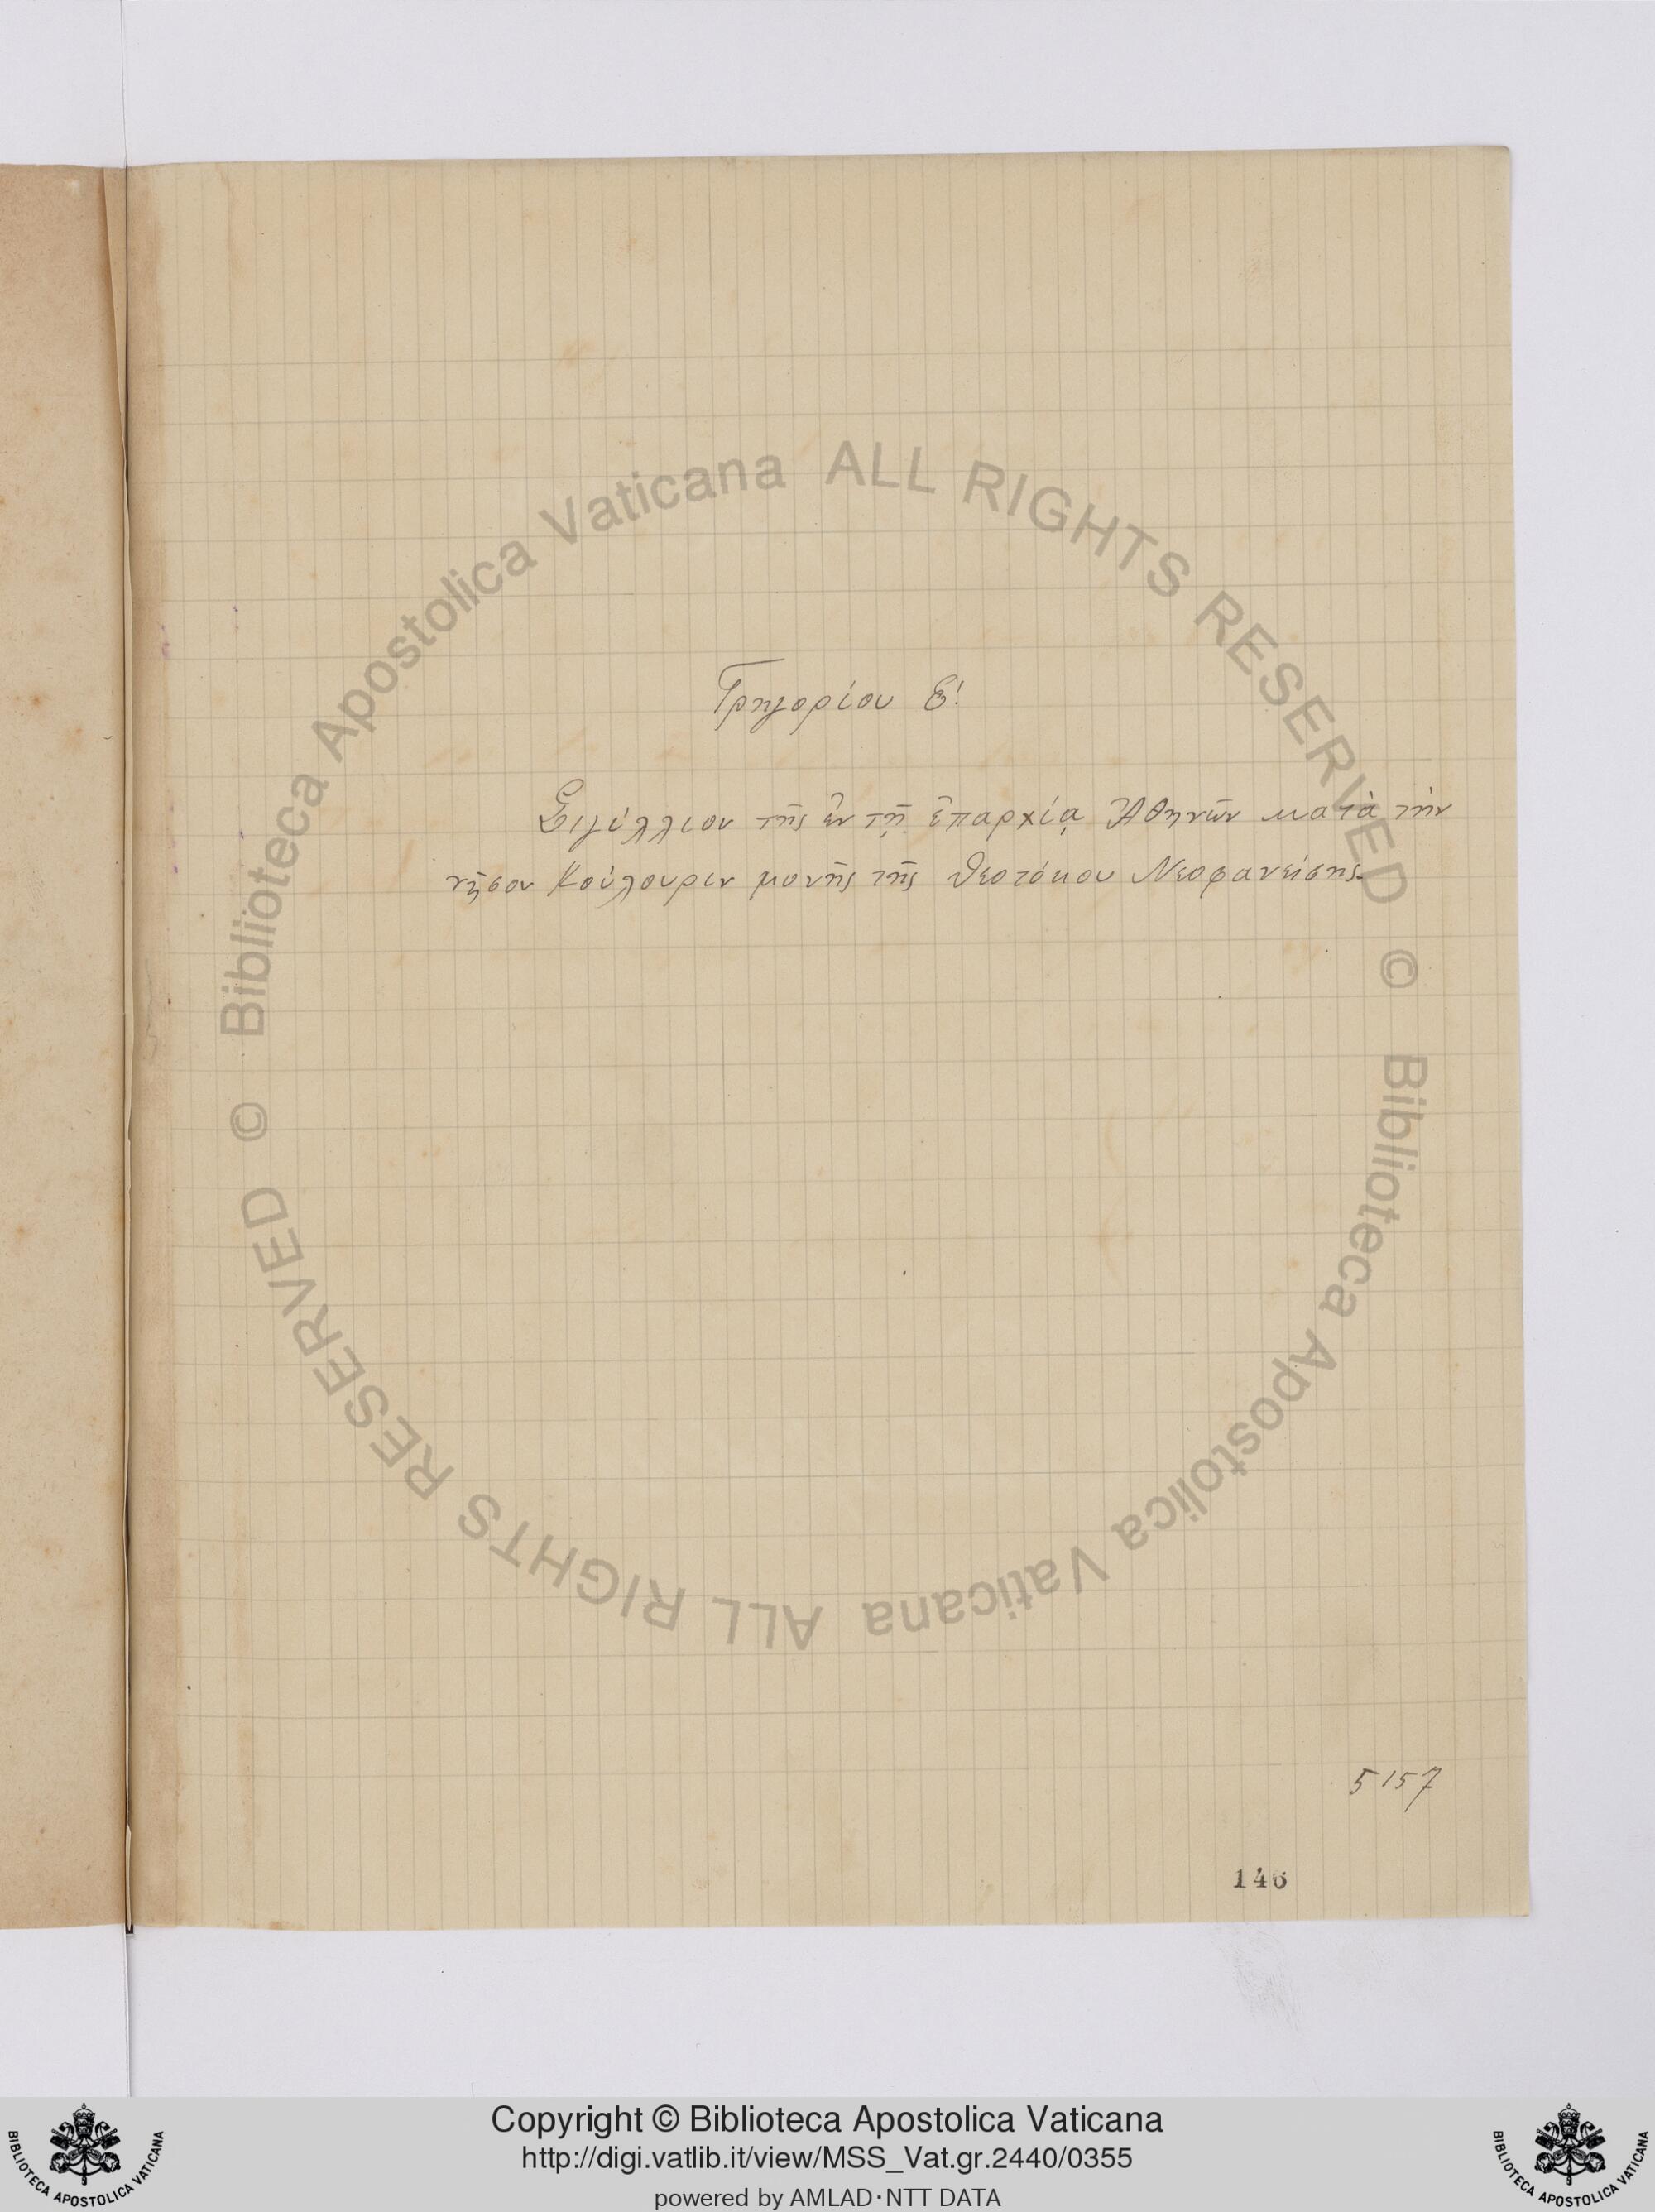 Γρηγορίου Ε!
Σιγίλλιον τῆς ἐν τῇ ἐπαρχίᾳ Ἀθηνῶν κατὰ τὴν
νῆσον Κούλουριν μονῆς τῆς Θεοτόκου Νεοφανείσης.
5157
146
© Biblioteca Apostolica Vaticana ALL RIGHTS RESERVED
© Biblioteca Apostolica Vaticana ALL RIGHTS RESERVED
Copyright © Biblioteca Apostolica Vaticana
http://digi.vatlib.it/view/MSS_Vat.gr.2440/0355
powered by AMLAD·NTT DATA
BIBLIOTECA APOSTOLICA VATICANA
BIBLIOTECA APOSTOLICA VATICANA